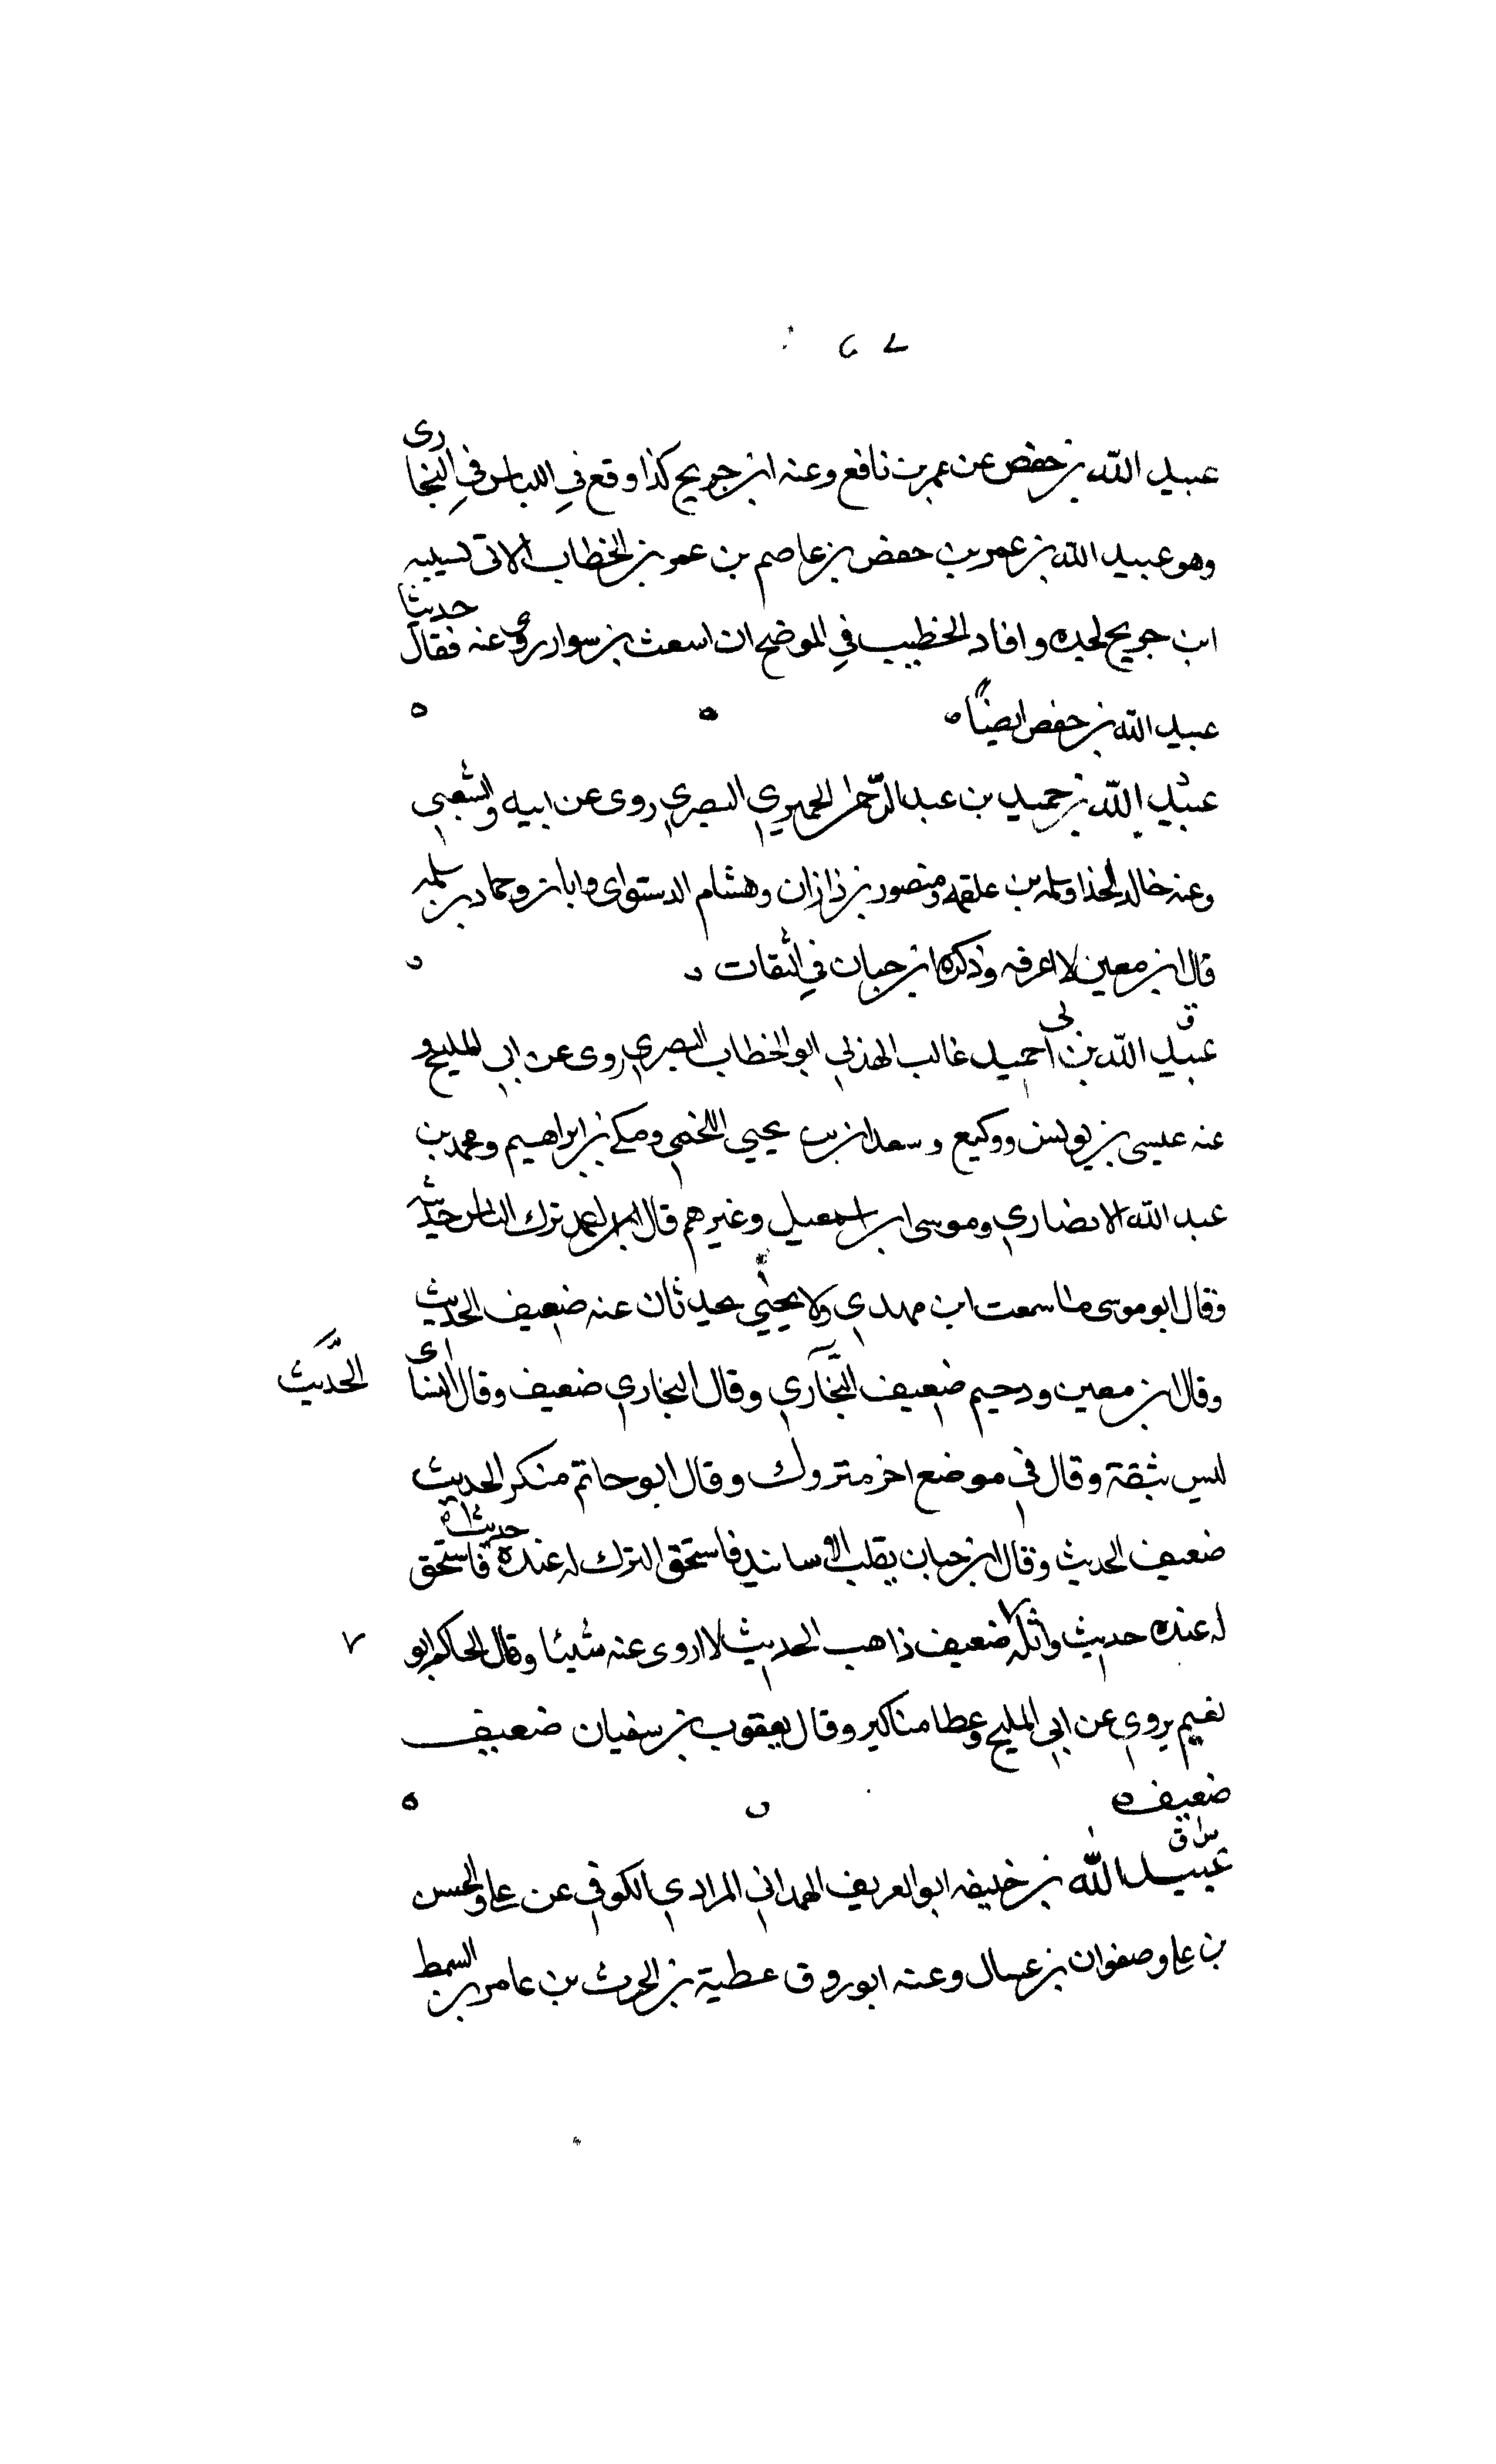 عبيد الله بن حفص عن عمر بن نافع وعنه ابن جريج كذا وقع في اللباس في البخارى
وهو عبيد الله بن عمر بن حفص بن عاصم بن عمر بن الخطاب الاتى نسبه
ابن جريج لجده وافاد الخطيب في الموضح ان اسعث بن سوار روى عنه فقال حديثا
عبيد الله بن حفص ايضًا ه
عبيد الله بن حميد بن عبد الرحمن الحميري البصري روى عن ابيه والشعبى
وعنه خالد الحذا وسلمه بن علقمه ومنصور بن زاذان وهشام الدستواى وابان وحماد بن سلمه
قال ابن معين لا اعرفه وذكره ابن حبان في الثقات
ق
عبيد الله بن ابى حميد غالب الهذلي ابو الخطاب البصري روى عن ابي المليح و
عنه عيسى بن يونس ووكيع وسعدان بن يحيي اللخمي ومكي بن ابراهيم ومحمد بن
عبد الله الانصاري وموسى ابن اسمعيل وغيرهم قال احمد ترك الناس حديثه
وقال ابو موسى ما سمعت ابن مهدي ولا يحيي يحدثان عنه ضعيف الحديث
وقال ابن معين ودحيم ضعيف البخاري وقال البخاري ضعيف وقال النساى
الحديث
ليس بثقة وقال في موضع اخر متروك وقال ابو حاتم منكر الحديث
ضعيف الحديث وقال ابن حبان يقلب الاسانيد فاستحق الترك له عنده حديثا فاستحق
له عنده حديث واثله ضعيف ذاهب الحديث لا اروى عنه شيئا وقال الحاكم ابو
نعيم يروي عن ابي المليح وعطا مناكير وقال يعقوب بن سفيان ضعيف
ضعيف ه
س ق
عبيد الله بن خليفه ابو العريف الهمداني المرادي الكوفي عن علي والحسن
بن علي وصفوان بن عسال وعنه ابو روق عطية بن الحرث بن عامر بن السمط